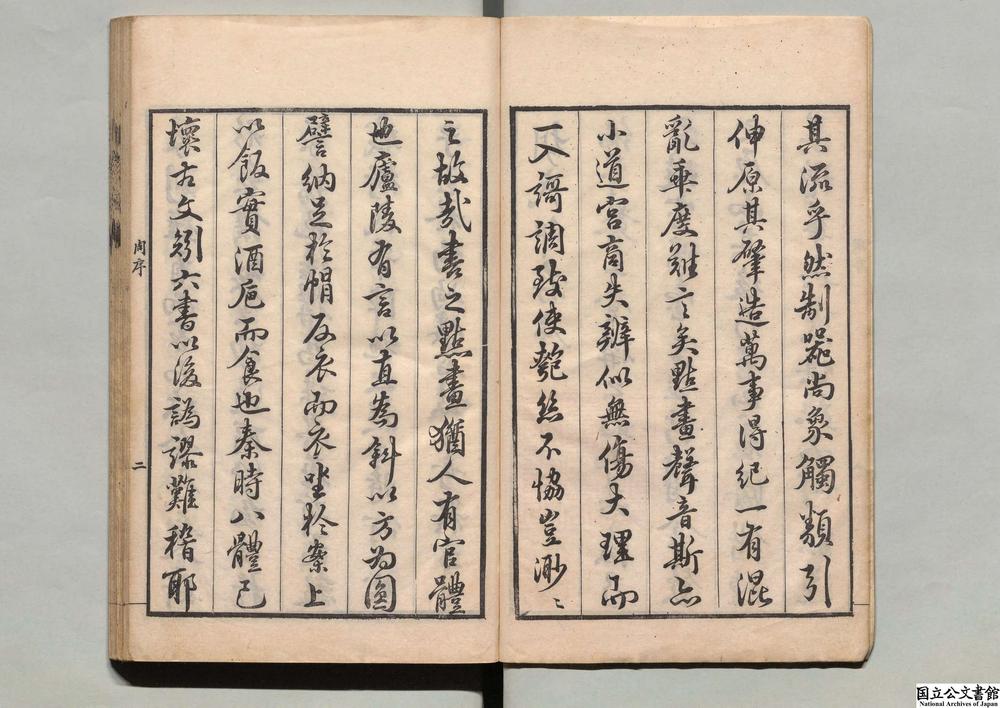 其流乎然制器尚象觸類引
伸原其肇造萬事得紀一有混
亂乖度難言矣點畫聲音斯亦
小道宮商失辨似無傷大理而
一入謌調致使匏絲不恊豈渺〻
之故哉書之點畫猶人有官體
也廬陵有言以直為斜以方為圓
譬納足於帽反衣而衣坐於案上
以飯實酒巵而食也秦時八體已
壞古文矧六書以後譌謬難稽耶
周序
二
国立公文書館
National Archives of Japan